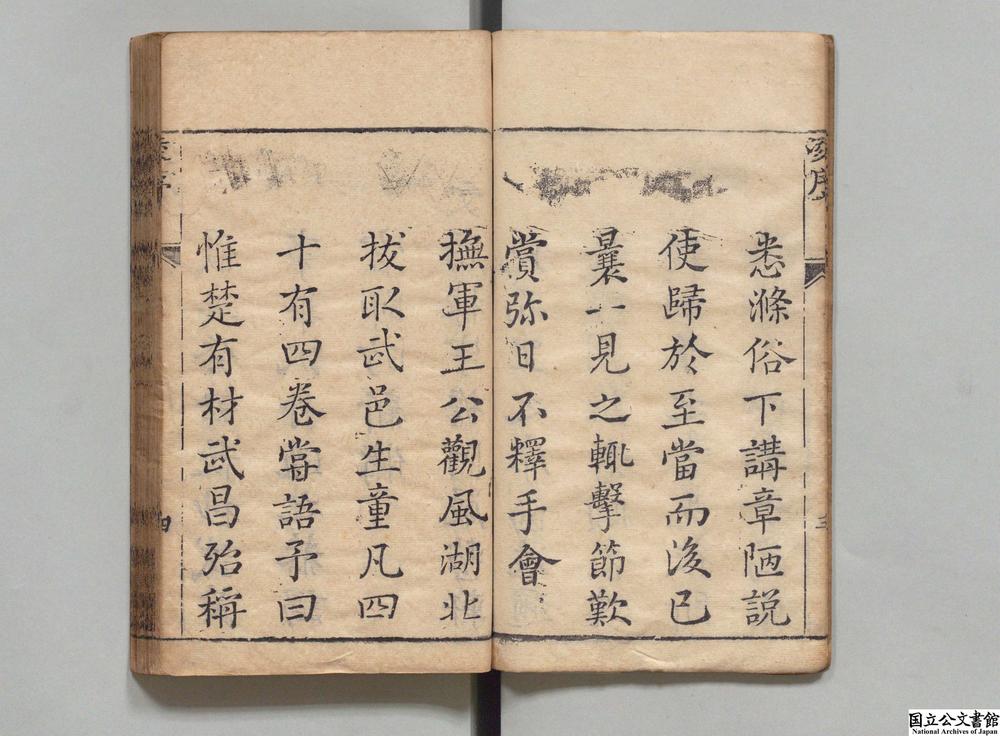 凌序
三
悉滌俗下講章陋説
使歸於至當而後已
曩一見之輒擊節歎
賞弥日不釋手會
撫軍王公觀風湖北
拔取武邑生童凡四
十有四卷嘗語予曰
惟楚有材武昌殆稱
凌序
四
国立公文書館
National Archives of Japan